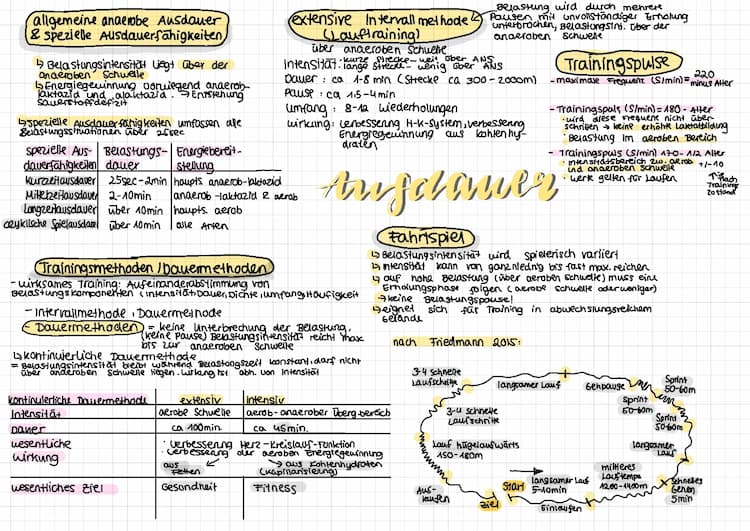 allgemeine anaerobe Ausdauer
& spezielle Ausdauerfähigkeiten
↳ Belastungsintensität liegt über der
anaeroben Schwelle
↳ Energiegewinnung vorwiegend anaerob-
laktazid und alaktazid → Entstehung
Sauerstoffdefizit
↳ spezielle Ausdauerfähigkeiten umfassen alle
Belastungssituationen über 25sec
spezielle Aus- | Belastungs- | Energiebereit-
dauerfähigkeiten | dauer | stellung
Kurzzeitausdauer | 25sec-2min | haupts. anaerob-laktazid
Mittelzeitausdauer | 2-10min | anaerob-laktazid & aerob
Langzeitausdauer | über 10min | haupts. aerob
azyklische Spielausdauer | über 10min | alle Arten
extensive Intervallmethode
(Lauftraining)
Belastung wird durch mehrere
Pausen mit unvollständiger Erholung
unterbrochen, Belastungsint. über der
anaeroben Schwelle
über anaeroben Schwelle
Intensität: kurze Strecke - weit über ANS
lange Strecke - wenig über ANS
Dauer: ca 1-8 min (Strecke ca 300-2000m)
Pause: ca 1,5-4min
Umfang: 8-12 Wiederholungen
Wirkung: Verbesserung H-K-System, Verbesserung
Energiegewinnung aus Kohlenhy-
draten
Trainingspulse
- maximale Frequenz (S/min) = 220
minus Alter
- Trainingspuls (S/min) = 180 - Alter
• wird diese Frequenz nicht über-
schritten → keine erhöhte Laktatbildung
• Belastung im aeroben Bereich
- Trainingspuls (S/min) 170 - 1/2 Alter
+/-10
• Intensitätsbereich zw. aerob
und anaeroben Schwelle
• Werk gelten für Laufen
↳ je nach
Training
zustand
Ausdauer
Trainingsmethoden / Dauermethoden
- wirksames Training: Aufeinanderabstimmung von
Belastungskomponenten (Intensität, Dauer, Dichte, Umfang, Häufigkeit
- Intervallmethode, Dauermethode
- Dauermethoden = keine Unterbrechung der Belastung,
(keine Pause) Belastungsintensität reicht max
bis zur anaeroben Schwelle
↳ kontinuierliche Dauermethode
= Belastungsintensität bleibt während Belastungszeit konstant, darf nicht
über anaeroben Schwelle liegen. Wirkung ist abh. von Intensität
kontinuierliche Dauermethode | extensiv | intensiv
Intensität | aerobe Schwelle | aerob-anaerober Überg.bereich
Dauer | ca 100min | ca 45min
wesentliche
Wirkung | • Verbesserung Herz-Kreislauf-Funktion
• Verbesserung der aeroben Energiegewinnung
aus Fetten → aus Kohlenhydraten
(Kapillarisierung)
wesentliches Ziel | Gesundheit | Fitness
Fahrtspiel
↳ Belastungsintensität wird spielerisch variiert
↳ Intensität kann von ganz niedrig bis fast max. reichen
↳ auf hohe Belastung (über aeroben Schwelle) muss eine
Erholungsphase folgen (aerobe Schwelle oder weniger)
→ keine Belastungspause!
↳ eignet sich für Training in abwechslungsreichem
Gelände
nach Friedmann 2015:
3-4 schnelle
Laufschritte
langsamer Lauf
Gehpause
Sprint
50-60m
Sprint
50-60m
3-4 schnelle
Laufschritte
Sprint
50-60m
Lauf hügelaufwärts
150-180m
langsamer
Lauf
mittleres
Lauftempo
1200-1400m
schnelles
Gehen
5min
Aus-
laufen
Ziel
Start
langsamer Lauf
5-10min
Einlaufen